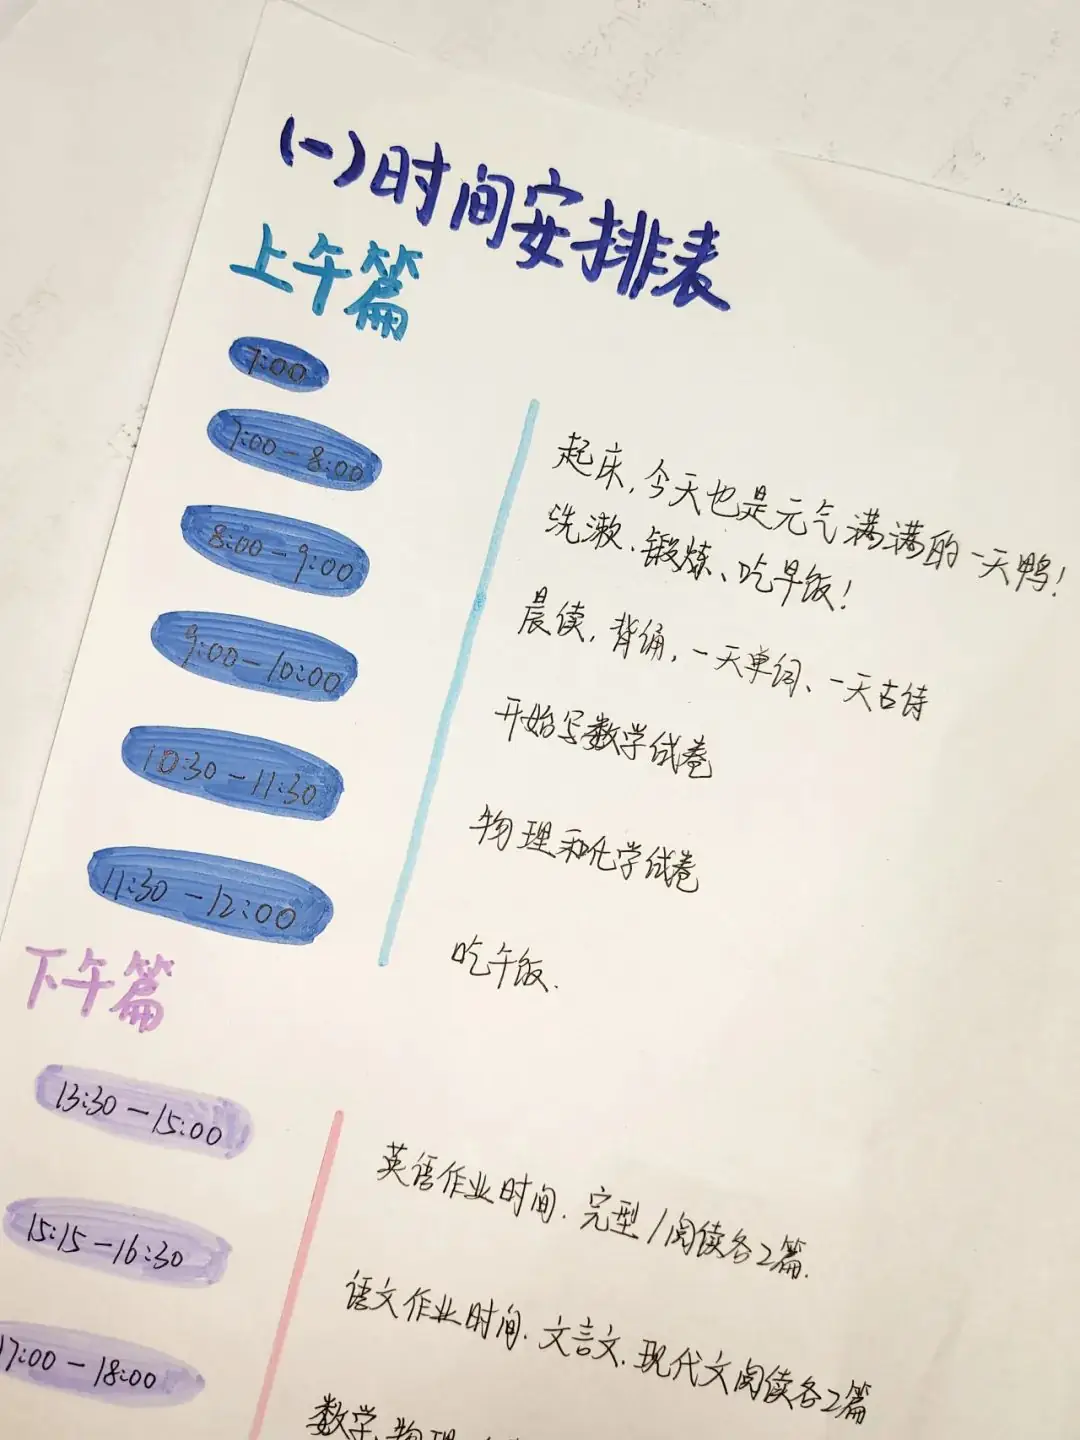 (一)时间安排表
上午篇
7:00
起床,今天也是元气满满的一天鸭!
7:00-8:00
洗漱、锻炼、吃早饭!
8:00-9:00
晨读,背诵,一天单词、一天古诗
9:00-10:00
开始写数学试卷
10:30-11:30
物理和化学试卷
11:30-12:00
吃午饭.
下午篇
13:30-15:00
英语作业时间.完型/阅读各2篇.
15:15-16:30
语文作业时间.文言文.现代文阅读各2篇
17:00-18:00
数学.物理